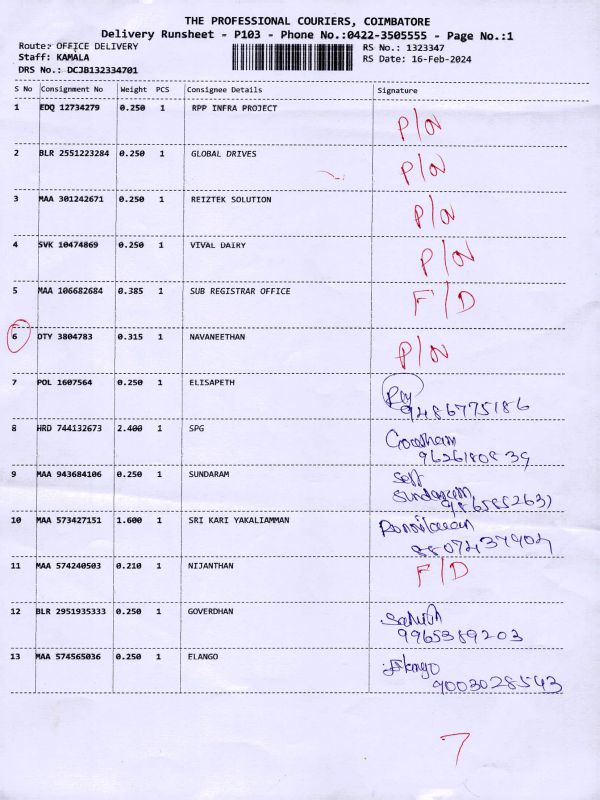 THE PROFESSIONAL COURIERS, COIMBATORE
Delivery Runsheet - P103 - Phone No.:0422-3505555 - Page No.:1
Route: OFFICE DELIVERY RS No.: 1323347
Staff: KAMALA RS Date: 16-Feb-2024
DRS No.: DCJB132334701
S No Consignment No Weight PCS Consignee Details Signature
1 EDQ 12734279 0.250 1 RPP INFRA PROJECT P/N
2 BLR 2551223284 0.250 1 GLOBAL DRIVES P/N
3 MAA 301242671 0.250 1 REIZTEK SOLUTION P/N
4 SVK 10474869 0.250 1 VIVAL DAIRY P/N
5 MAA 106682684 0.385 1 SUB REGISTRAR OFFICE F/D
6 OTY 3804783 0.315 1 NAVANEETHAN P/N
7 POL 1607564 0.250 1 ELISAPETH
9486775186
8 HRD 744132673 2.400 1 SPG
9626180839
9 MAA 943684106 0.250 1 SUNDARAM self
Sundaram
10 MAA 573427151 1.600 1 SRI KARI YAKALIAMMAN
8807437904
11 MAA 574240503 0.210 1 NIJANTHAN F/D
12 BLR 2951935333 0.250 1 GOVERDHAN
9965389203
13 MAA 574565036 0.250 1 ELANGO Elango
9003028543
7